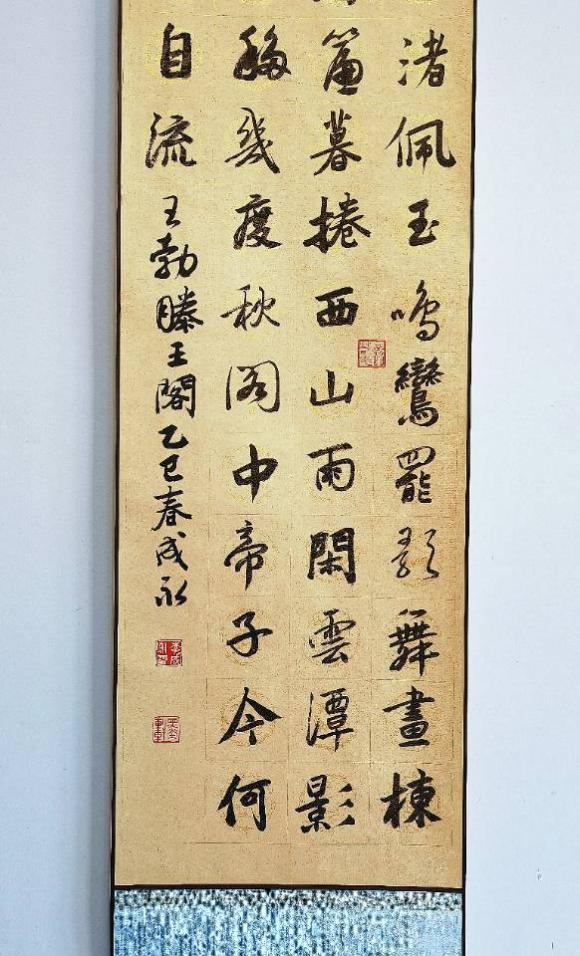 渚佩玉鳴鸞罷歌舞畫棟
簾暮捲西山雨閑雲潭影
移幾度秋閣中帝子今何
自流
王勃滕王閣乙巳春成永